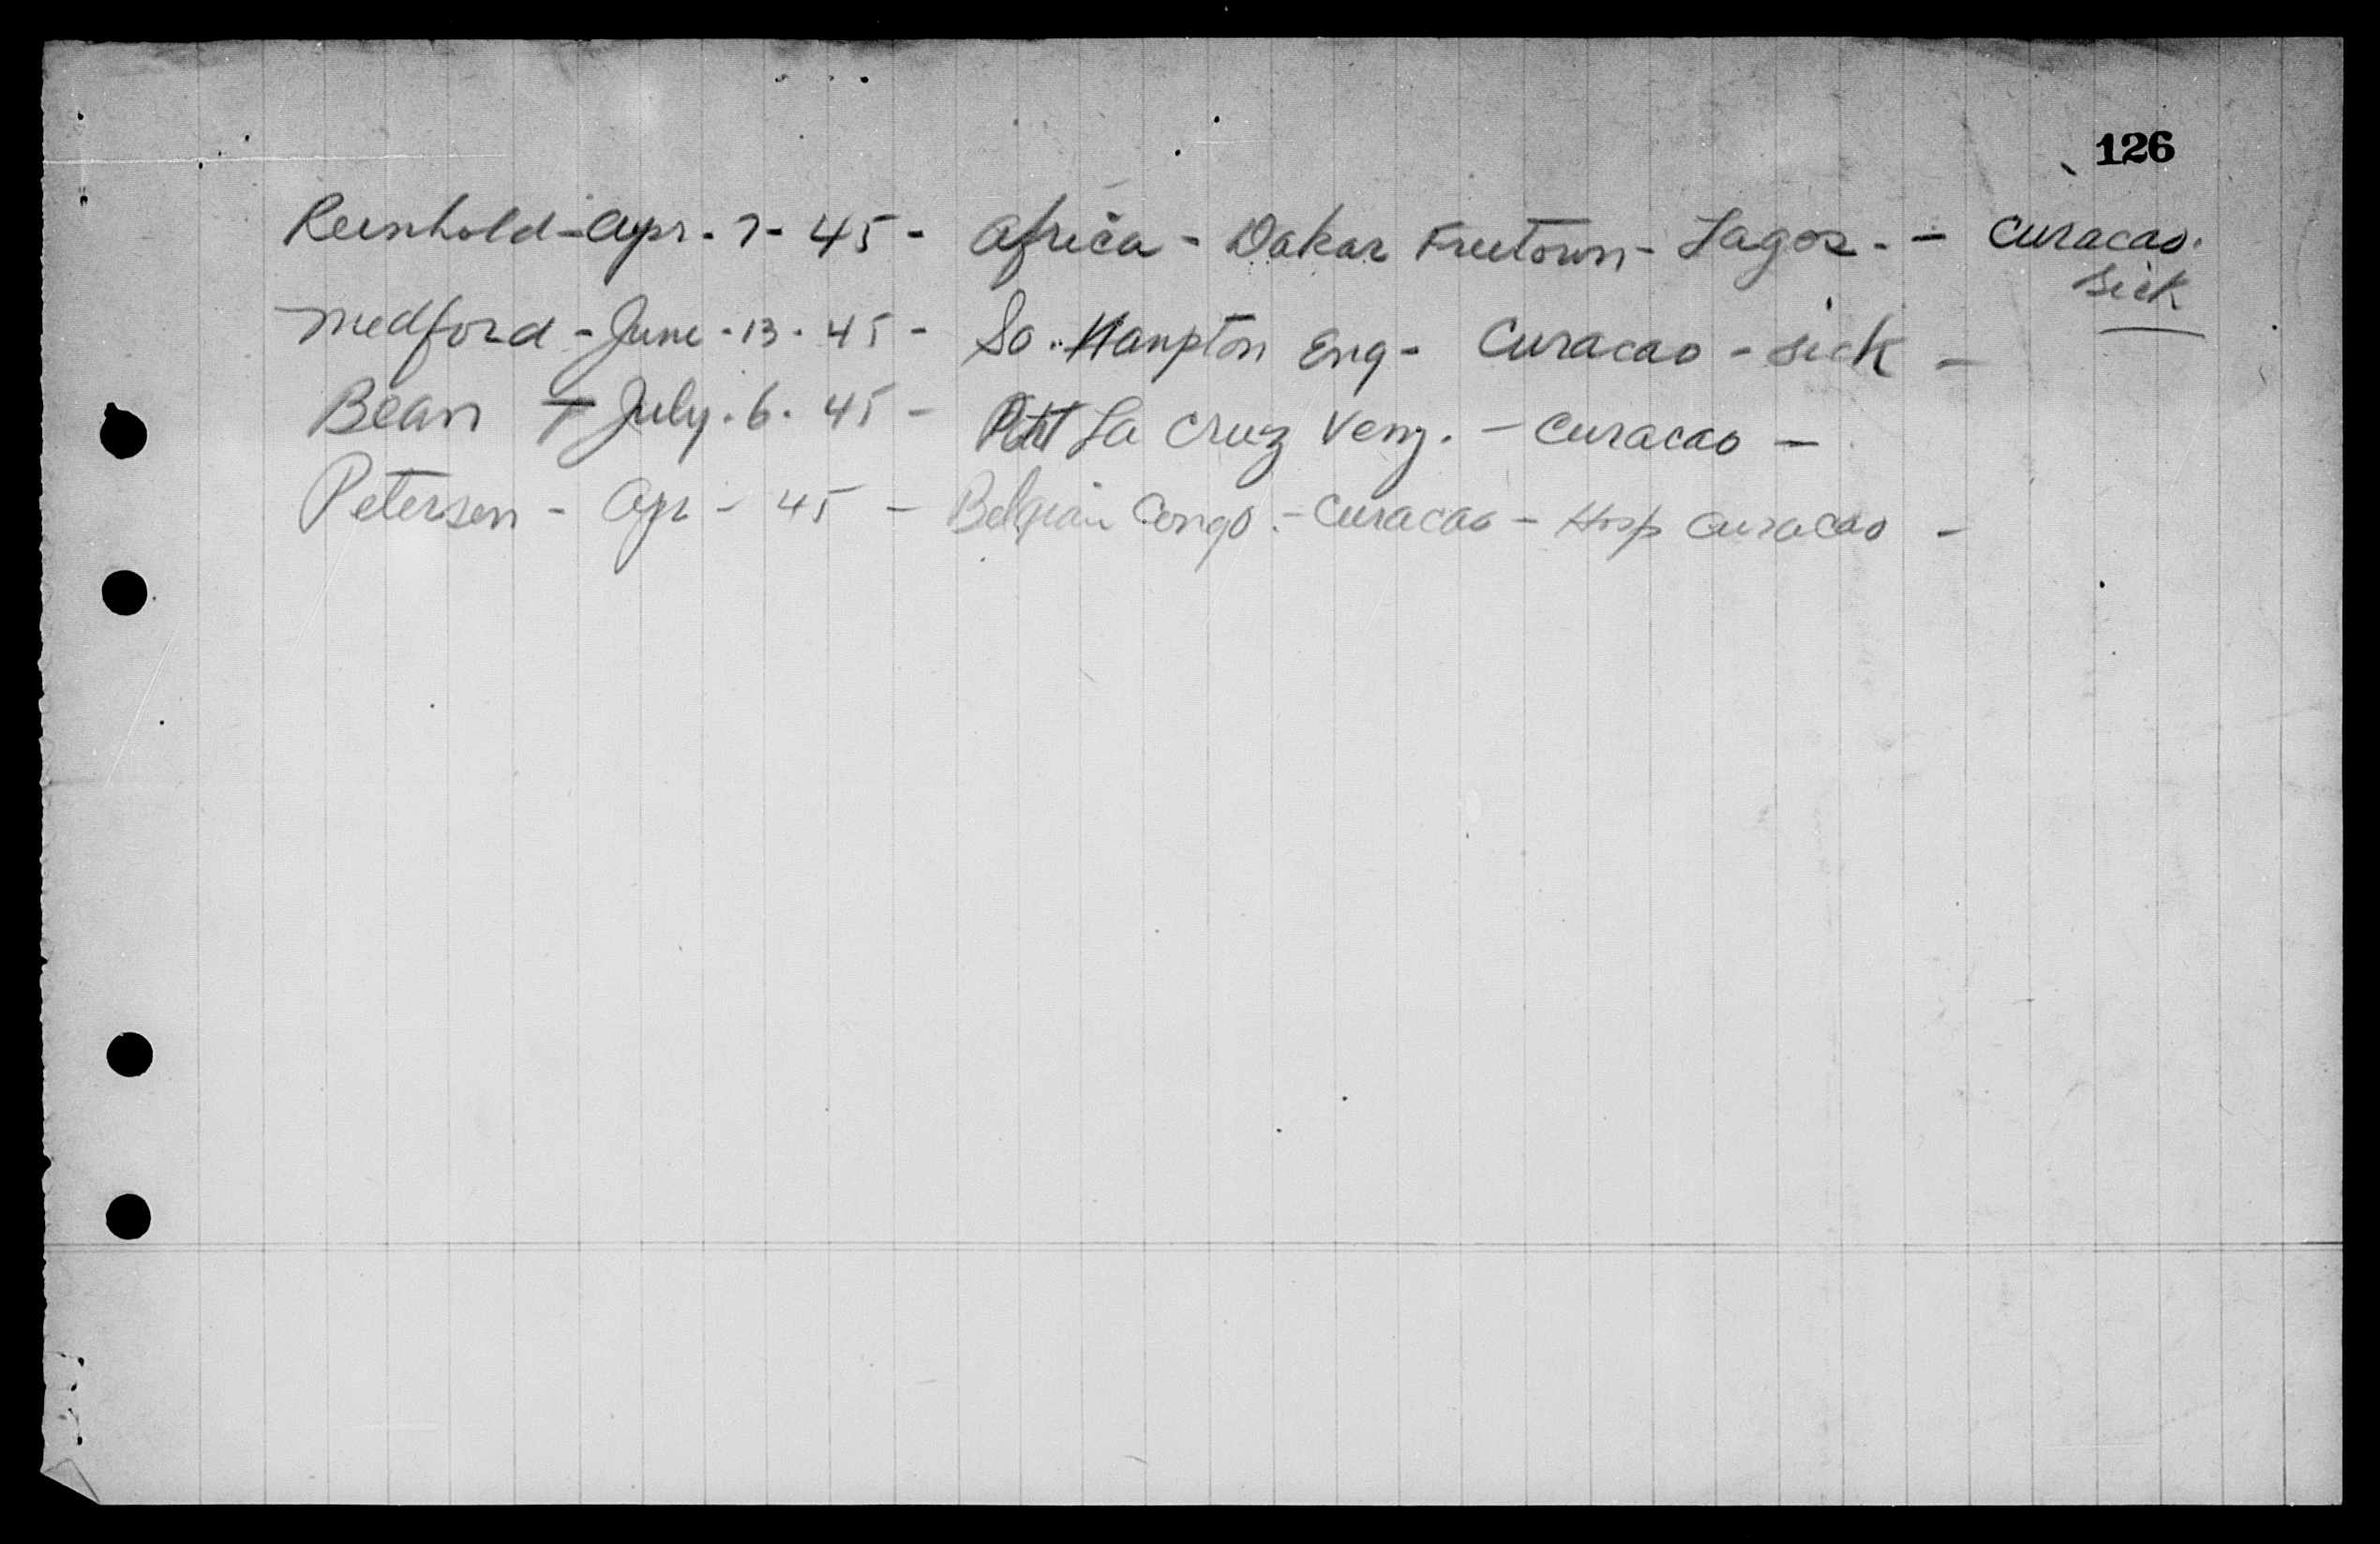 126
Reinhold - Apr. 7 - 45 - Africa - Dakar Freetown - Lagos - - Curacao.
sick
Medford - June - 13 - 45 - So. Hampton Eng - Curacao - sick -
Bean - July. 6. 45 - La Cruz Venz. - Curacao -
Petersen - Apr - 45 - Belgian Congo - Curacao - Hosp Curacao -